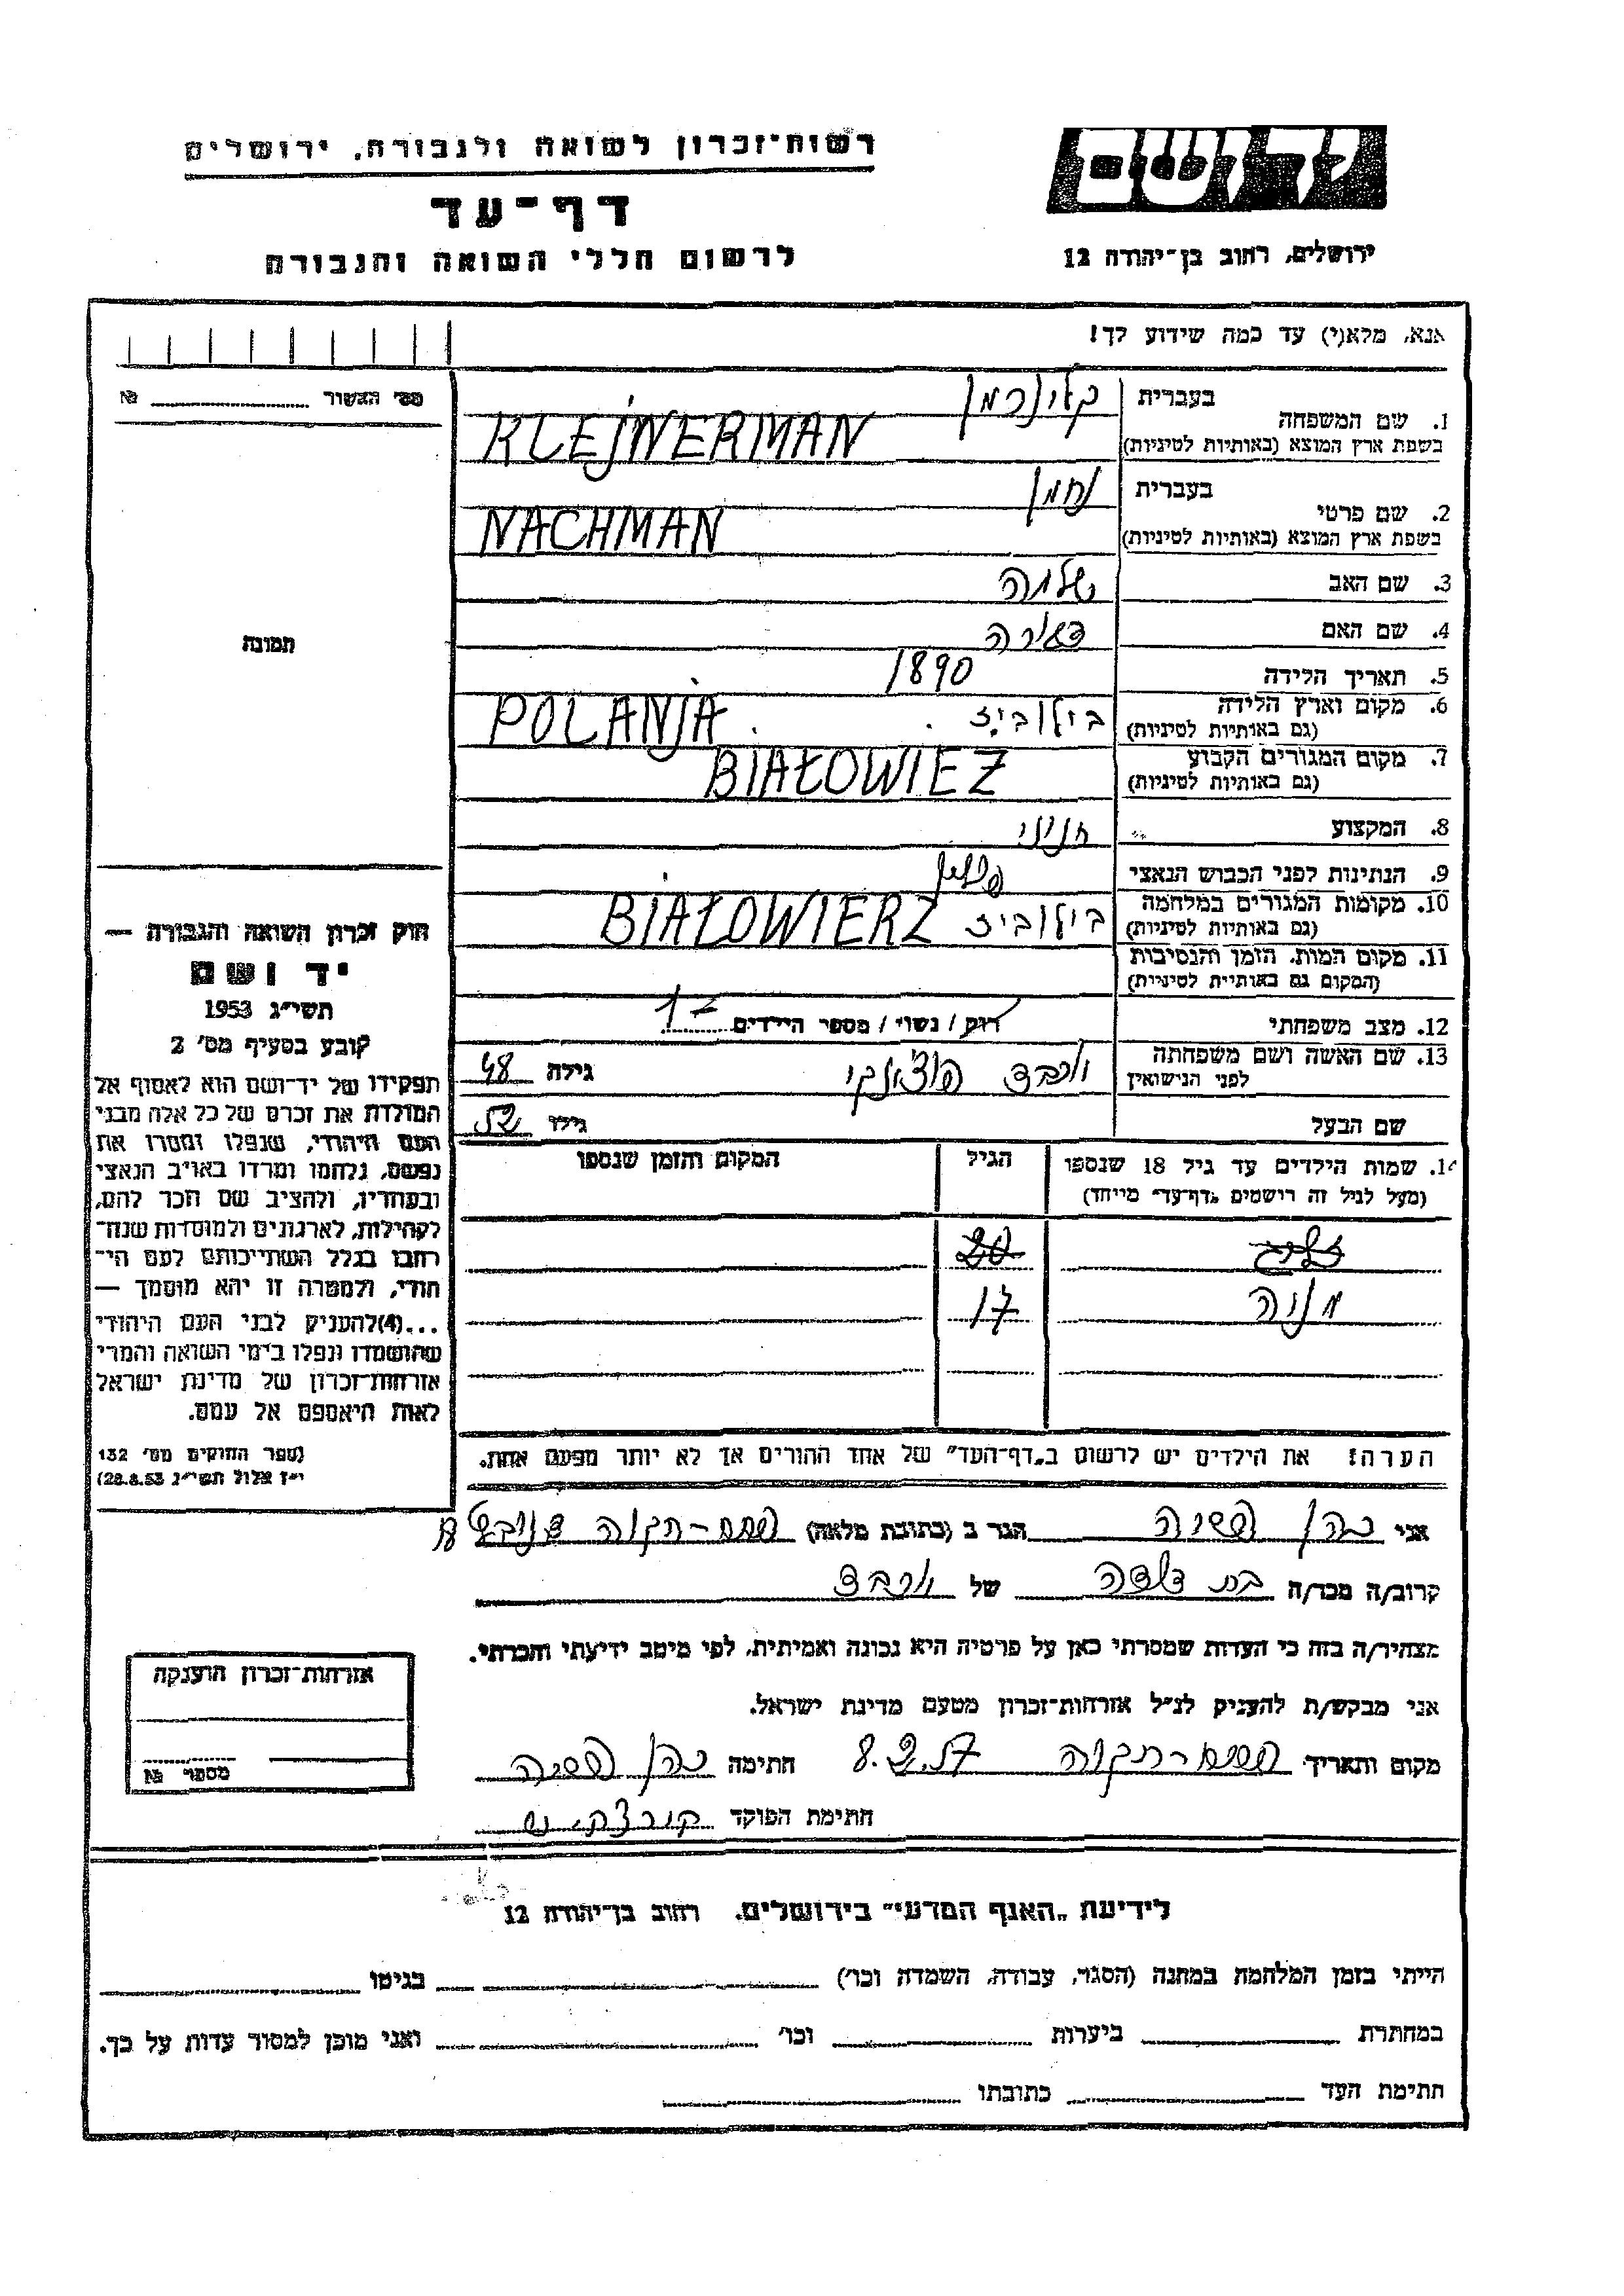 רשות־זכרון לשואה ולגבורה, ירושלים
יד ושם
דף־עד
לרשום חללי השואה והגבורה
ירושלים, רחוב בן־יהודה 12
אנא, מלא(י) עד כמה שידוע לך!
מס' האשור №
תמונה
1. שם המשפחה
בעברית
קלינרמן
בשפת ארץ המוצא (באותיות לטיניות)
KLEJNERMAN
2. שם פרטי
בעברית
נחמן
בשפת ארץ המוצא (באותיות לטיניות)
NACHMAN
3. שם האב
שלמה
4. שם האם
5. תאריך הלידה
1890
6. מקום וארץ הלידה
(גם באותיות לטיניות)
בילוביז . POLANJA
7. מקום המגורים הקבוע
(גם באותיות לטיניות)
BIAŁOWIEŻ
8. המקצוע
חנוני
9. הנתינות לפני הכבוש הנאצי
10. מקומות המגורים במלחמה
(גם באותיות לטיניות)
בילוביז BIAŁOWIERZ
11. מקום המות, הזמן והנסיבות
(המקום גם באותיות לטיניות)
12. מצב משפחתי
רוק / נשוי / מספר הילדים
13. שם האשה ושם משפחתה
לפני הנישואין
גילה 48
שם הבעל
גילו 52
14. שמות הילדים עד גיל 18 שנספו
(מעל לגיל זה רישמים „דף־עד" מייחד)
הגיל
המקום והזמן שנספו
20
מניה 17
הערה! את הילדים יש לרשום ב„דף־העד" של אחד ההורים אך לא יותר מפעם אחת.
חוק זכרון השואה והגבורה —
יד ושם
תשי"ג 1953
קובע בסעיף מס' 2
תפקידו של יד־ושם הוא לאסוף אל
המולדת את זכרם של כל אלה מבני
העם היהודי, שנפלו ומסרו את
נפשם, נלחמו ומרדו באויב הנאצי
ובעוזריו, ולהציב שם וזכר להם,
לקהילות, לארגונים ולמוסדות שנח־
רבו בגלל השתייכותם לעם הי־
הודי, ולמטרה זו יהא מוסמך —
...(4)להעניק לבני העם היהודי
שהושמדו ונפלו בימי השואה והמרי
אזרחות־זכרון של מדינת ישראל
לאות היאספם אל עמם.
(ספר החוקים מס' 132
י"ז אלול תשי"ג 28.8.53)
אני כהן פסיה הגר ב (כתובת מלאה) פתח-תקוה
קרוב/ה מכר/ה בת דודה של
מצהיר/ה בזה כי העדות שמסרתי כאן על פרטיה היא נכונה ואמיתית, לפי מיטב ידיעתי והכרתי.
אני מבקש/ת להעניק לנ"ל אזרחות־זכרון מטעם מדינת ישראל.
מקום ותאריך פתח-תקוה 8.2.57 חתימה כהן פסיה
חתימת הפוקד
אזרחות־זכרון הוענקה
מספר №
לידיעת „האגף המדעי" בירושלים, רחוב בן־יהודה 12
הייתי בזמן המלחמה במחנה (הסגר, עבודה, השמדה וכו') בגיטו
במחתרת ביערות וכו' ואני מוכן למסור עדות על כך.
חתימת העד כתובתו